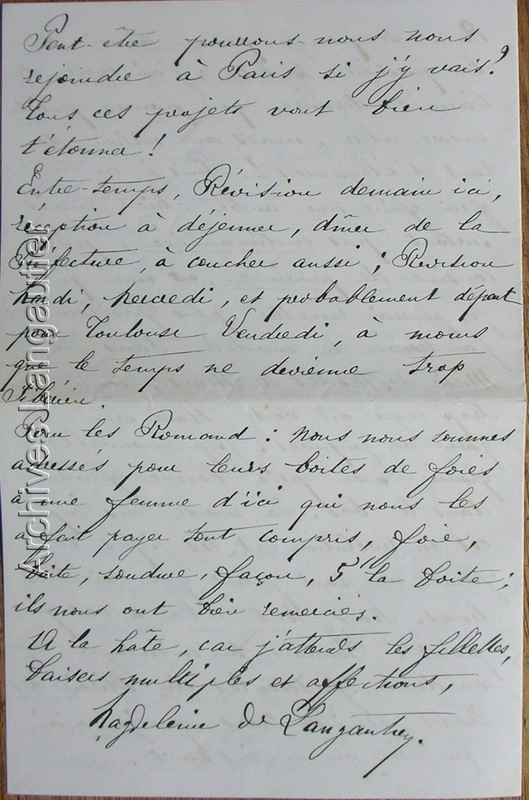 Peut-être pourrons-nous nous
rejoindre à Paris si j'y vais ?
Tous ces projets vont bien
t'étonner !
Entre-temps, Révision demain ici,
réception à déjeuner, dîner de la
Préfecture, à coucher aussi ; Révision
Mardi, Mercredi, et probablement départ
pour Toulouse Vendredi, à moins
que le temps ne devienne trop
Sibérien.
Pour les Romand : nous nous sommes
adressés pour leurs boites de foies
à une femme d'ici qui nous les
a fait payer tout compris, foie,
boite, soudure, façon, 5 la boite ;
ils nous ont bien remerciés.
A la hâte, car j'attends les fillettes,
baisers multiples et affections,
Magdeleine de Langautier.
Archives Jean Gautier